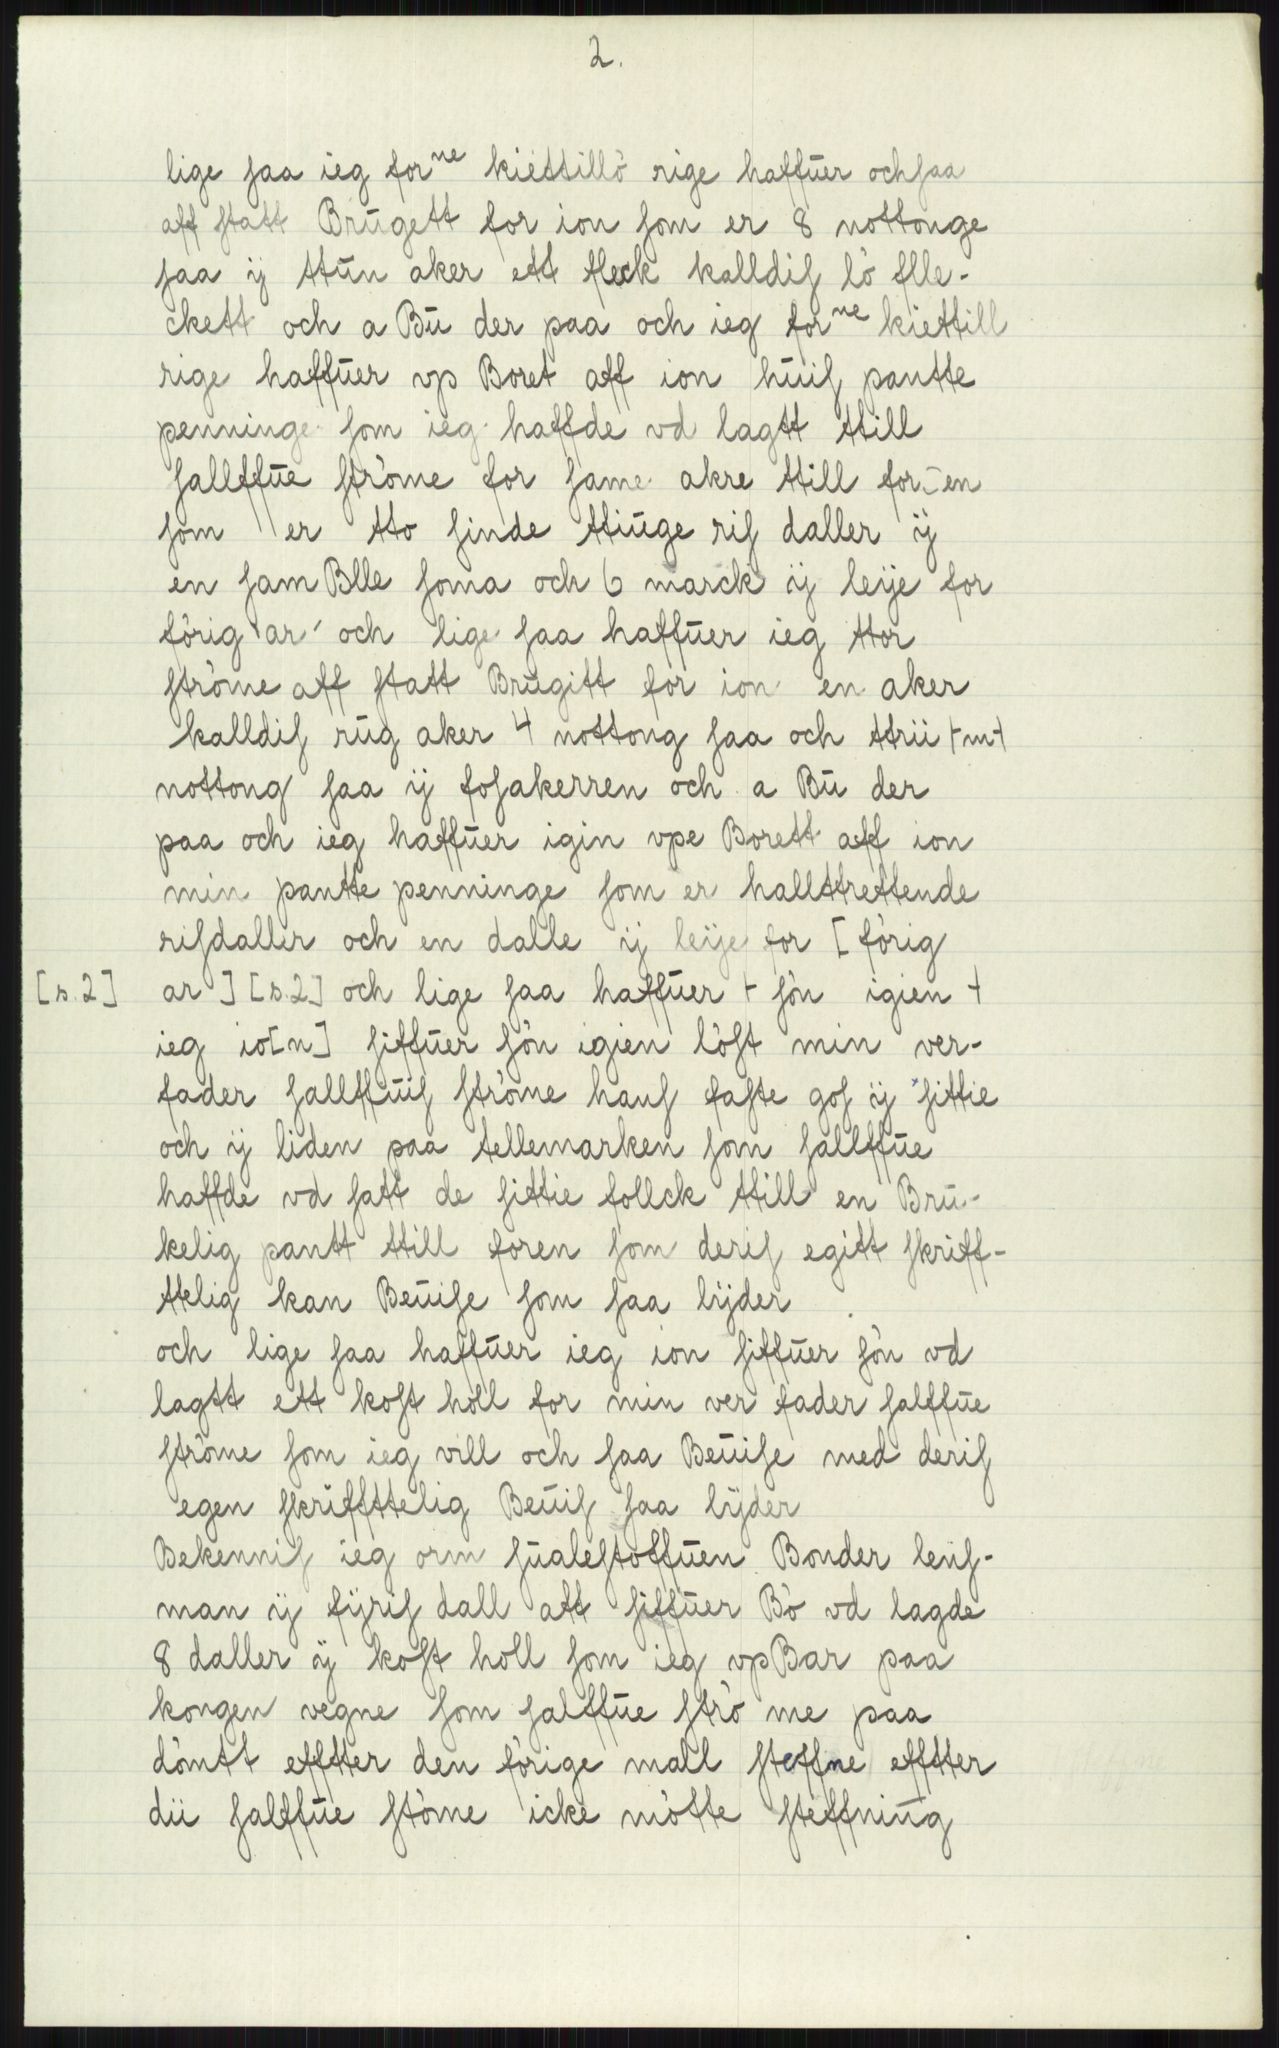 2.
lige ſaa ieg forne kiettillò rige haffuer och ſaa
aff ſtatt Brŭgett for ion ſom er 8 nottonge
ſaa ÿ ttŭn aker ett fleck kalldiſ lò flle-
ckett och a Bŭ der paa och ieg forne kiettill
rige haffŭer vp Boret aff ion hŭiſ pantte
penninge ſom ieg haffde vd lagtt ttill
ſallffŭe ſtròme for ſame akre ttill for-en
ſom er tto ſinde ttiŭge riſ daller ÿ
en ſam Blle ſoma och 6 marck ÿ leÿe for
fòrig ar och lige ſaa haffŭer ieg ttor
ſtròme aff ſtatt Brŭgitt for ion en aker
kalldiſ rŭg aker 4 nottong ſaa och ttrii +m+
nottong ſaa ÿ foſakerren och a Bŭ der
paa och ieg haffŭer igin vpe Borett aff ion
min pantte penninge ſom er hallttrettende
riſdallir och en dalle ÿ leÿe for [fòrig
[s.2] ar] [s.2] och lige ſaa haffŭer + ſòn igien +
ieg io[n] ſiffŭer ſòn igien lòſt min ver-
fader ſallffŭiſ ſtròme hanſ faſte goſ ÿ ſittie
och ÿ liden paa tellemarken ſom ſallffŭe
haffde vd ſatt de ſittie follck ttill en Brŭ-
kelig pantt ttill foren ſom deriſ egitt ſkriff-
ttelig kan Beŭiſe ſom ſaa lÿder
och lige ſaa haffŭer ieg ion ſiffŭer ſòn vd
lagtt ett koſt holl for min ver fader ſalffŭe
ſtròme ſom ieg vill och ſaa Beŭiſe med deriſ
egen ſkriffttelig Beŭiſ ſaa lÿder
Bekenniſ ieg orm ſŭaleſtoffŭen Bonder lenſ-
man ÿ fÿriſ dall att ſiffŭer Bò vd lagde
8 daller ÿ koſt holl ſom ieg vpBar paa
kongen vegne ſom ſalffŭe ſtrò me paa
dòmtt efftter den fòrige mall ſteffne efftter
dii ſalffŭe ſtòme icke mòtte ſteffnŭng